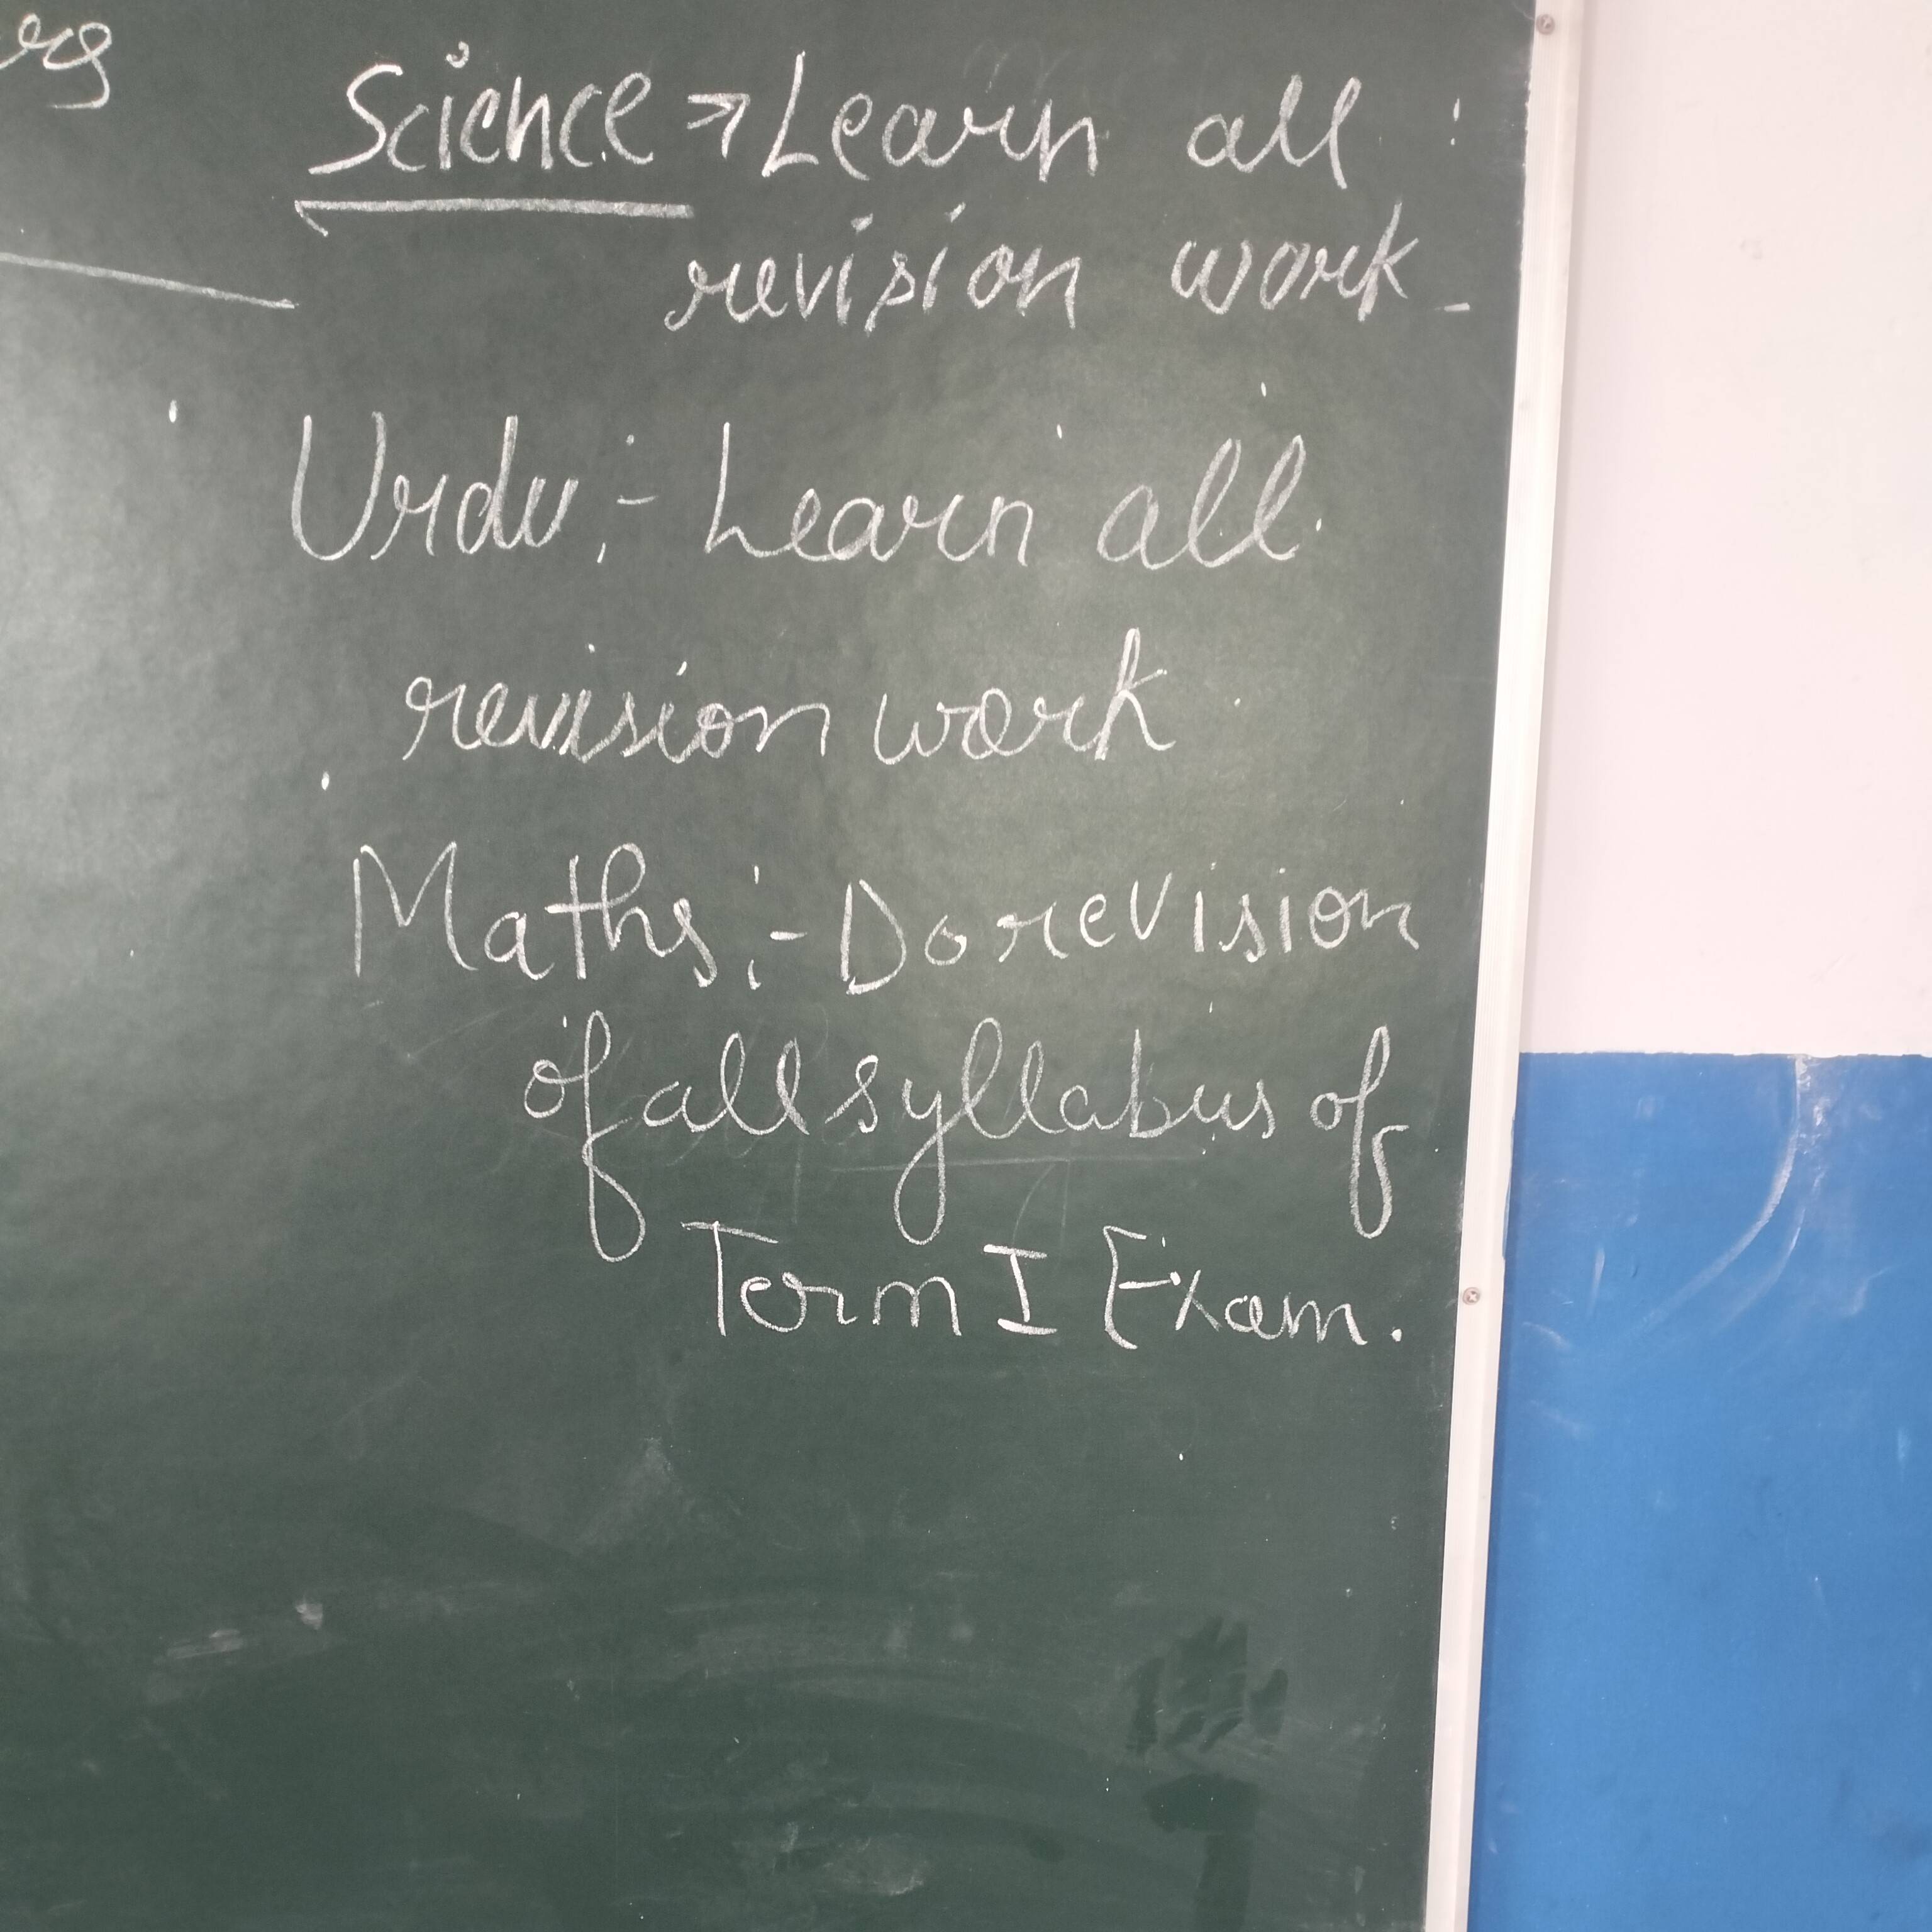 Science → Learn all
revision work -
Urdu :- Learn all
revision work
Maths :- Do revision
of all syllabus of
Term I Exam.